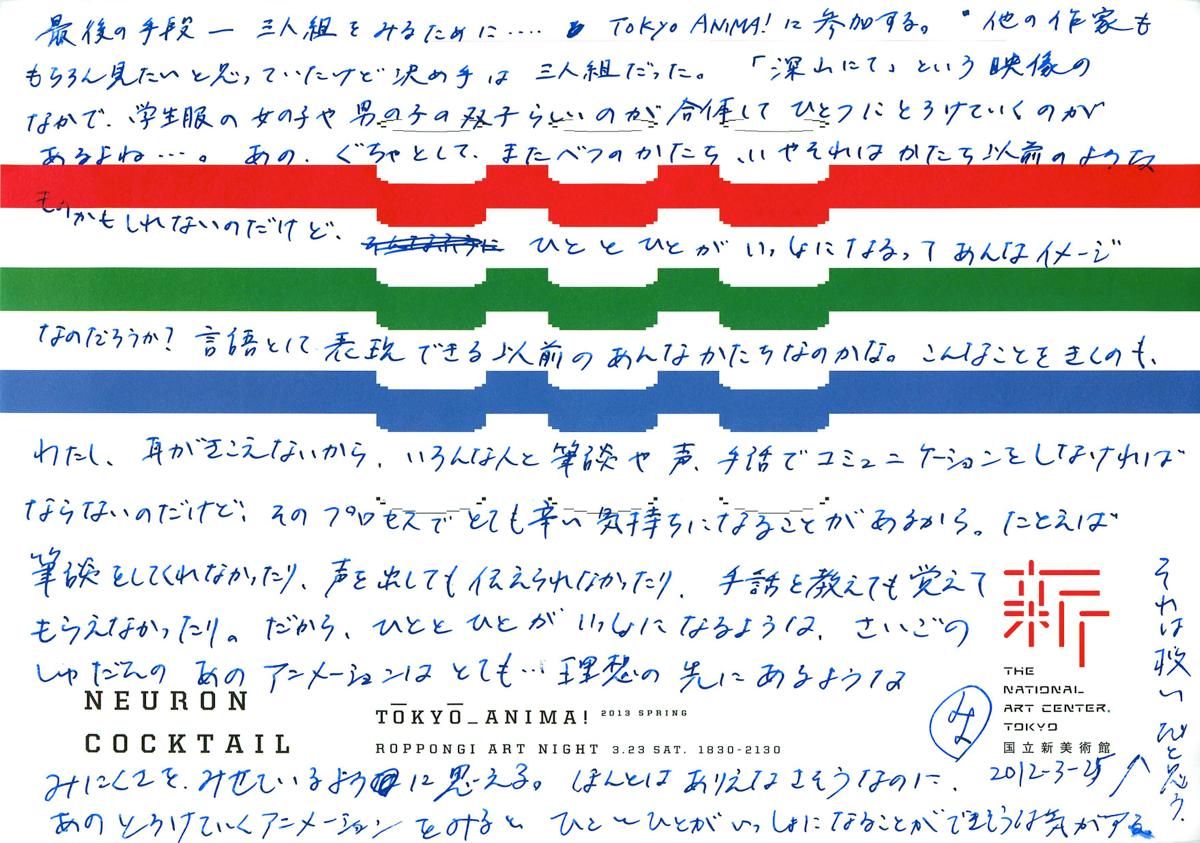 最後の手段 ー 三人組をみるために‥‥ TOKYO ANIMA! に参加する。 他の作家も
もちろん見たいと思っていたけど決め手は 三人組だった。 「深山にて」という映像の
なかで、学生服の女の子や男の子の双子らしいのが合体してひとつにとろけていくのが
あるよね…。 あの、ぐちゃとして、またべつのかたち、いやそれはかたち以前のような
ものかもしれないのだけど、 ひととひとがいっしょになるってあんなイメージ
なのだろうか? 言語として表現できる以前のあんなかたちなのかな。こんなことをきくのも、
わたし、耳がきこえないから、いろんな人と筆談や声、手話でコミュニケーションをしなければ
ならないのだけど、そのプロセスでとても辛い気持ちになることがあるから。たとえば
筆談をしてくれなかったり、声を出しても伝えられなかったり、手話を教えても覚えて
もらえなかったり。だから、ひととひとがいっしょになるような、さいごの
しゅだんの あのアニメーションはとても…理想の先にあるような
NEURON
COCKTAIL
TŌKYŌ_ANIMA! 2013 SPRING
ROPPONGI ART NIGHT 3.23 SAT. 1830-2130
みにくさを、みせているように思える。ほんとはありえなさそうなのに、
あのとろけていくアニメーションをみると ひととひとがいっしょになることができそうな気がする
新
THE
NATIONAL
ART CENTER,
TOKYO
国立新美術館
み
2012-3-25
それは救いだと思う。